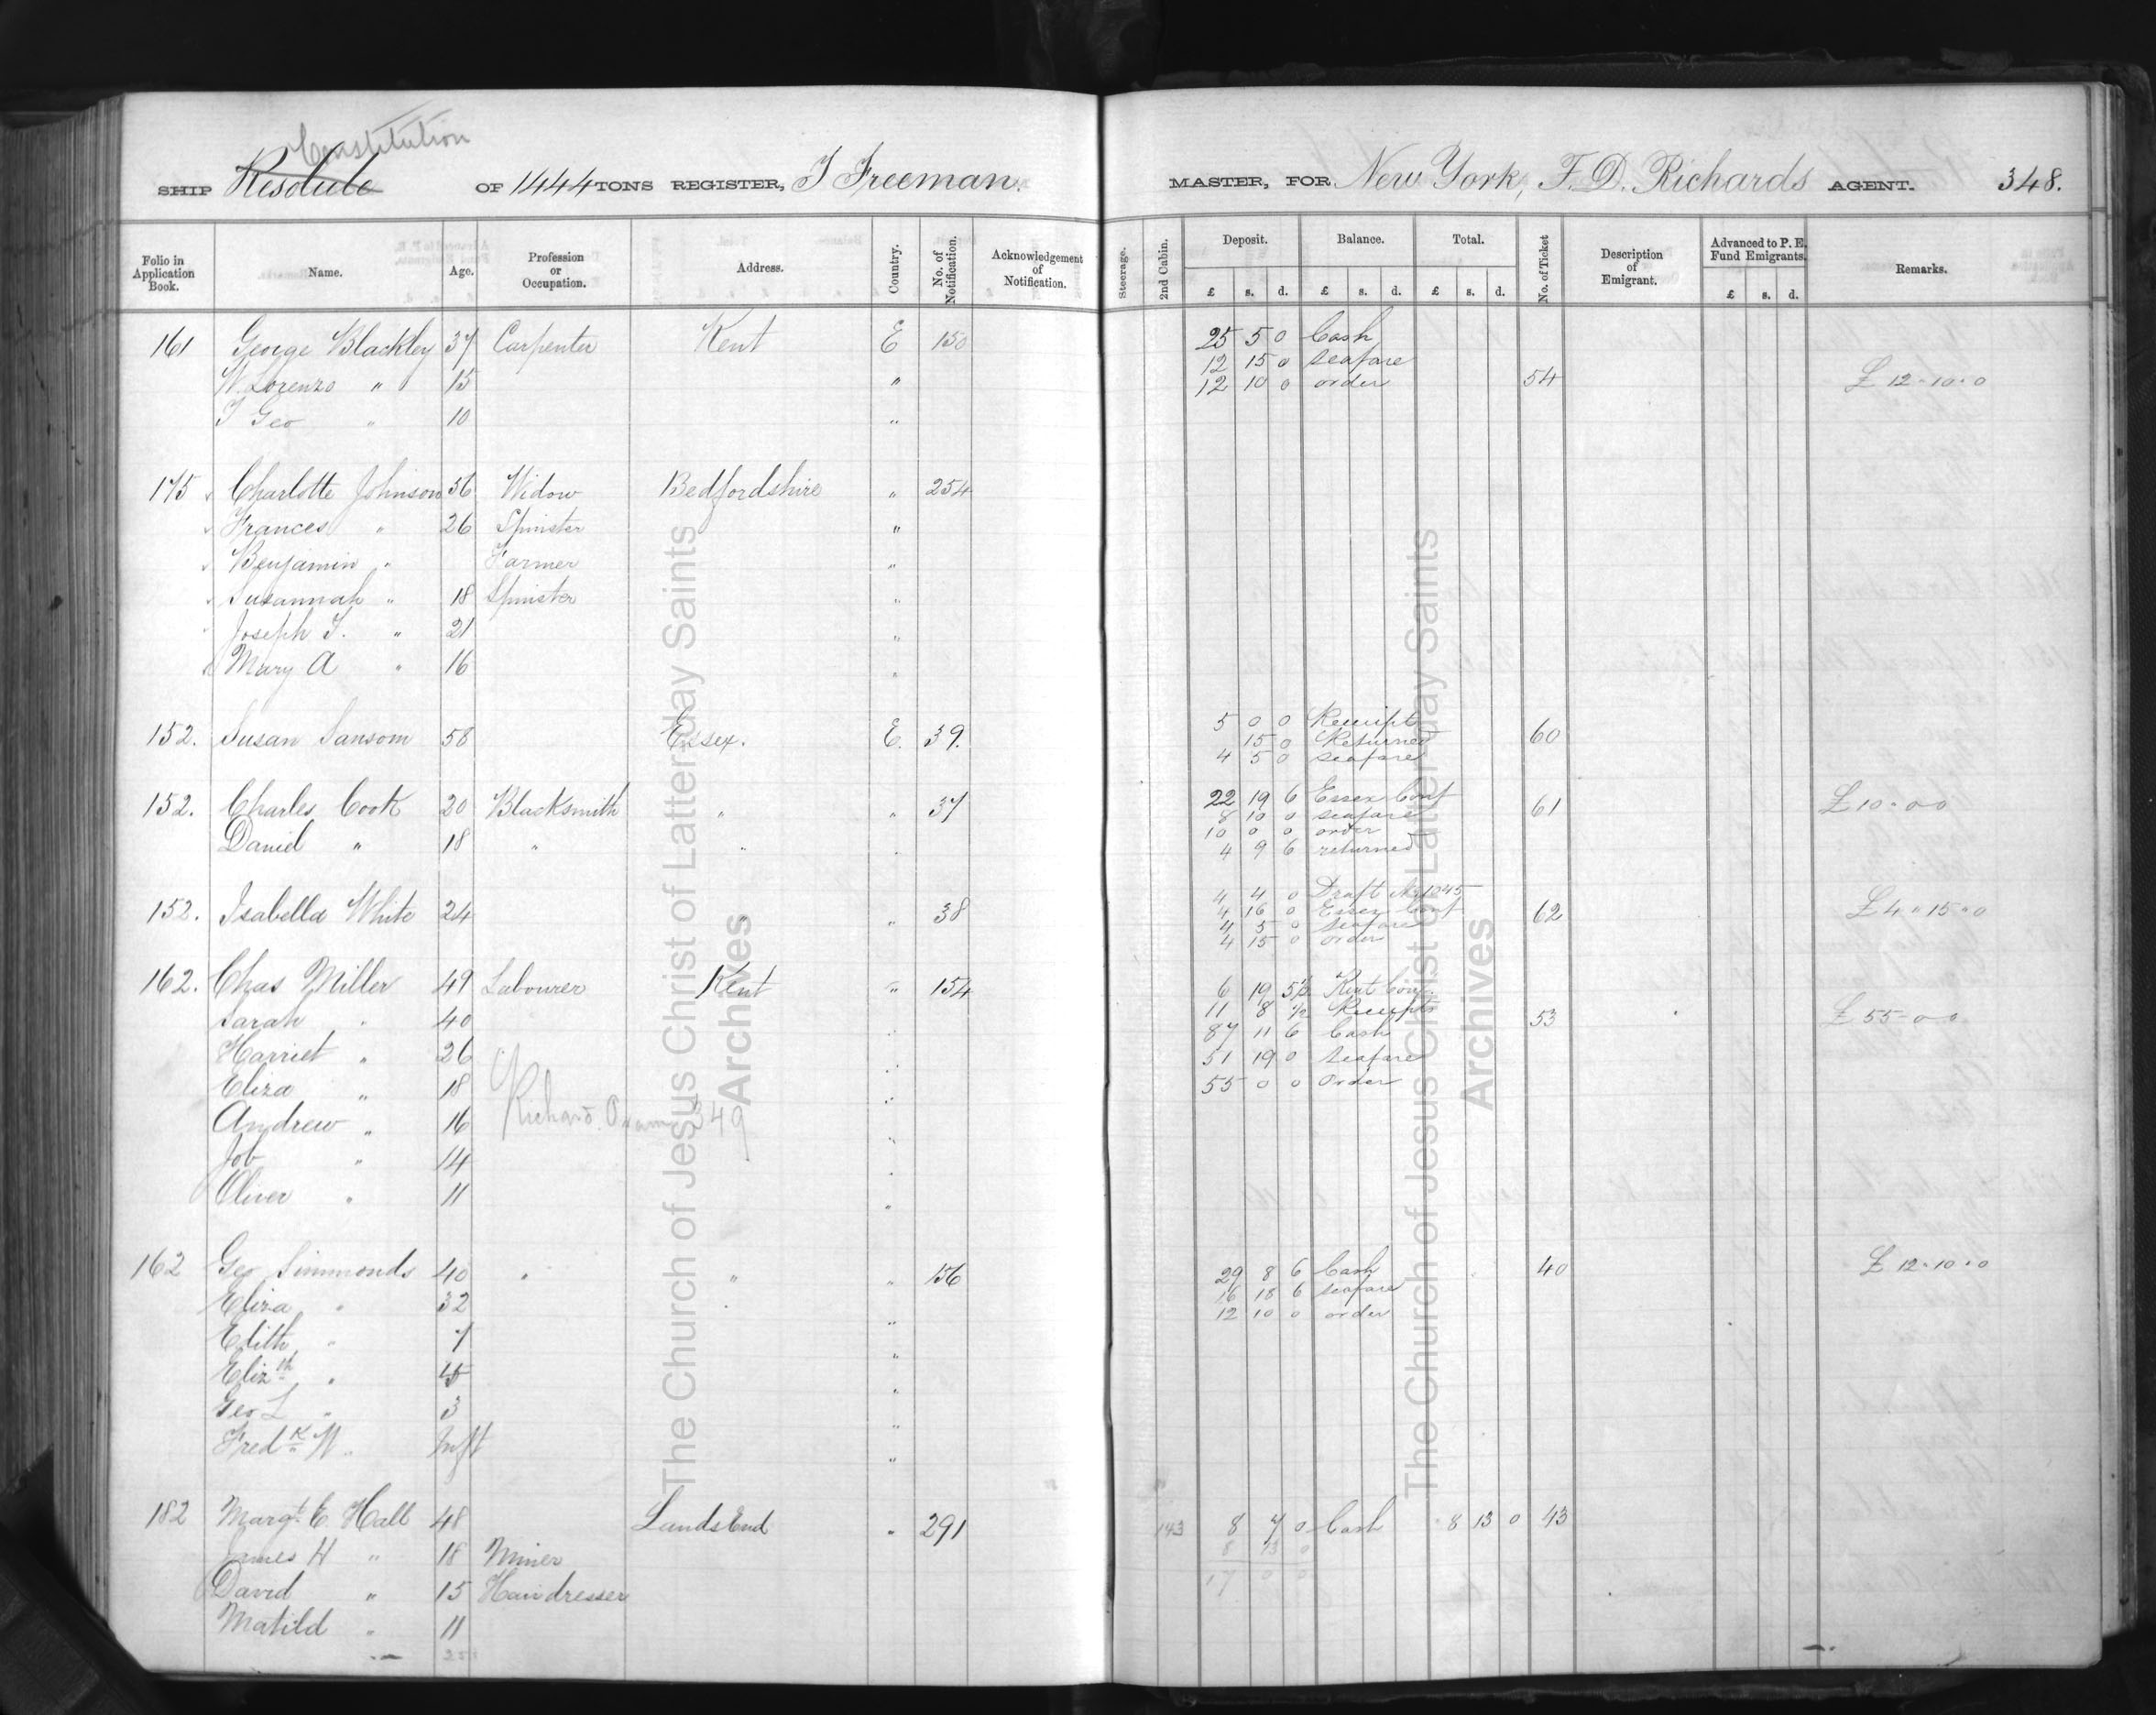 Constitution
SHIP Resolute OF 1444 TONS REGISTER, J Freeman. MASTER, FOR New York, F. D. Richards AGENT. 348.
Folio in Application Book. Name. Age. Profession or Occupation. Address. Country. No. of Notification. Acknowledgement of Notification. Steerage. 2nd Cabin. Deposit. Balance. Total. No. of Ticket Description of Emigrant. Advanced to P. E. Fund Emigrants. Remarks.
£ s. d. £ s. d. £ s. d. £ s. d.
161 George Blackley 37 Carpenter Kent E 150 25 5 0 Cash
12 15 0 seafare
W. Lorenzo " 15 " 12 10 0 order 54 £ 12 " 10 " 0
J Geo " 10 "
175 Charlotte Johnson 56 Widow Bedfordshire " 254
Frances " 26 Spinster "
Benjamin " Farmer "
Susannah " 18 Spinster "
Joseph T. " 21 "
Mary A " 16 "
5 0 0 Receipt
152. Susan Sansom 58 Essex. E. 39. 15 0 Returned 60
4 5 0 seafare
152. Charles Cook 20 Blacksmith " " 37 22 19 6 Essex Conf 61 £ 10 " 0 0
8 10 0 seafare
10 0 0 order
Daniel " 18 " " " 4 9 6 returned
4 4 0 Draft No 1045
152. Isabella White 24 " " 38 4 16 0 Essex Conf 62 £ 4 " 15 " 0
4 5 0 seafare
4 15 0 order
162. Chas Miller 49 Labourer Kent " 154 6 19 5½ Kent Conf.
Sarah " 40 " 11 8 ½ Receipts 53 £ 55 - 0 0
87 11 6 Cash
Harriet " 26 " 51 19 0 seafare
Eliza " 18 " 55 0 0 order
Andrew " 16 Richard 349 "
Job " 14 "
Oliver " 11 "
162 Geo Simmonds 40 " " " 156 29 8 6 Cash 40 £ 12 " 10 " 0
Eliza " 32 " 16 18 6 seafare
12 10 0 order
Edith " 7 "
Eliz.th " 5 "
Geo L " 3 "
Fredk W. " Inft "
182 Margt. E. Hall 48 Lands End " 291 143 8 7 0 Cash 8 13 0 43
James H " 18 Miner 8 13 0
David " 15 Hairdresser 17 0 0
Matild " 11
The Church of Jesus Christ of Latter-day Saints
Archives
The Church of Jesus Christ of Latter-day Saints
Archives